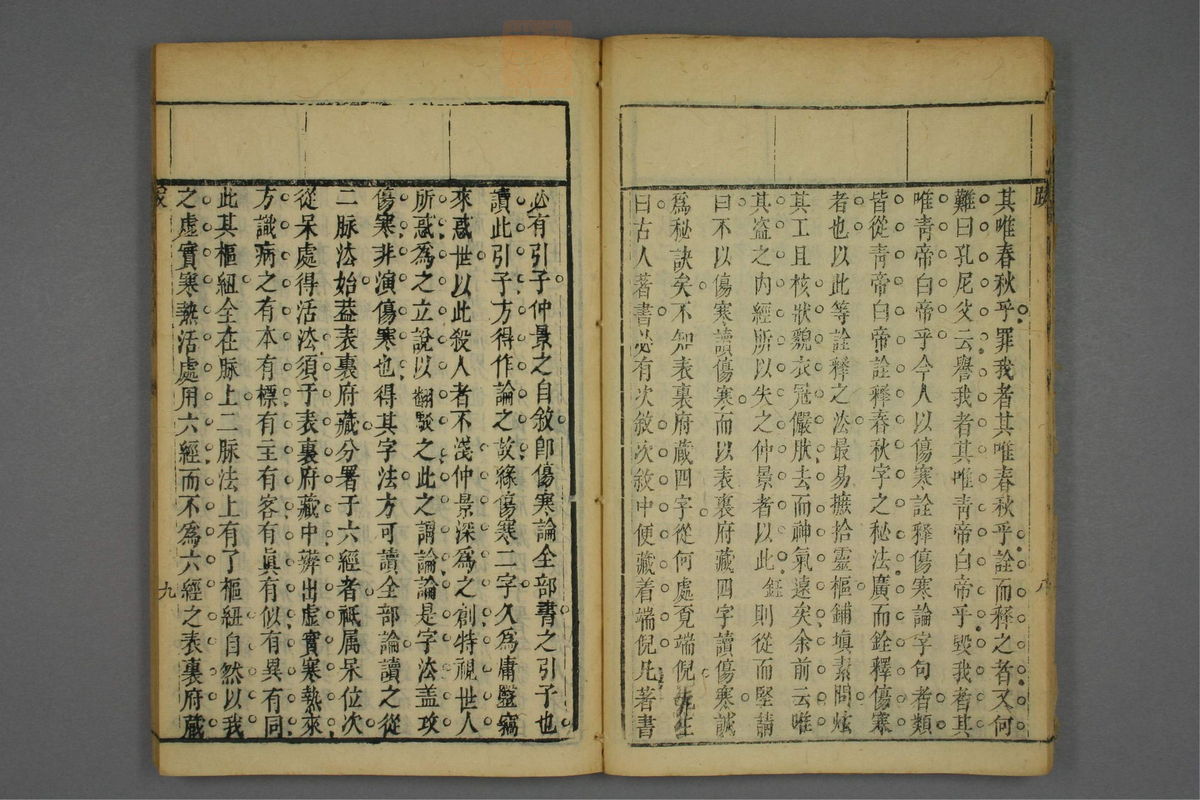 其唯春秋乎罪我者其唯春秋乎詮而釋之者又何
難曰孔尼父云譽我者其唯靑帝白帝乎毀我者其
唯靑帝白帝乎今人以傷寒詮釋傷寒論字句者類
皆從靑帝白帝詮釋春秋字之秘法廣而銓釋傷寒
者也以此等詮釋之法最易摭拾靈樞鋪塡素問炫
其工且核狀貌衣冠儼肰去而神氣遠矣余前云唯
其盗之內經所以失之仲景者以此鈺則從而堅請
曰不以傷寒讀傷寒而以表裏府藏四字讀傷寒誠
爲秘訣矣不知表裏府藏四字從何處覓端倪先生
曰古人著書必有次敘次敘中便藏着端倪凡著書
必有引子仲景之自敘卽傷寒論全部書之引子也
讀此引子方得作論之故緣傷寒二字久爲庸毉竊
來惑世以此殺人者不淺仲景深爲之創特視世人
所惑爲之立說以翻駁之此之謂論論是字法盖攻
傷寒非演傷寒也得其字法方可讀全部論讀之從
二脉法始葢表裏府藏分署于六經者祗属呆位次
從呆處得活法須于表裏府藏中辨出虛實寒熱來
方識病之有本有標有主有客有眞有似有異有同
此其樞紐全在脉上二脉法上有了樞紐自然以我
之虛實寒熱活處用六經而不爲六經之表裏府藏
九